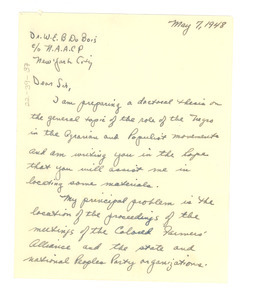 May 7, 1948
Dr. W E B Du Bois
c/o N.A.A.C.P
New York City
Dear Sir,
I am preparing a doctoral thesis on
the general topic of the role of the Negro
in the Agrarian and Populist movements
and am writing you in the hope
that you will assist me in
locating some materials.
My principal problem is the
location of the proceedings of the
meetings of the Colored Farmers'
Alliance and the state and
national Peoples Party organizations.